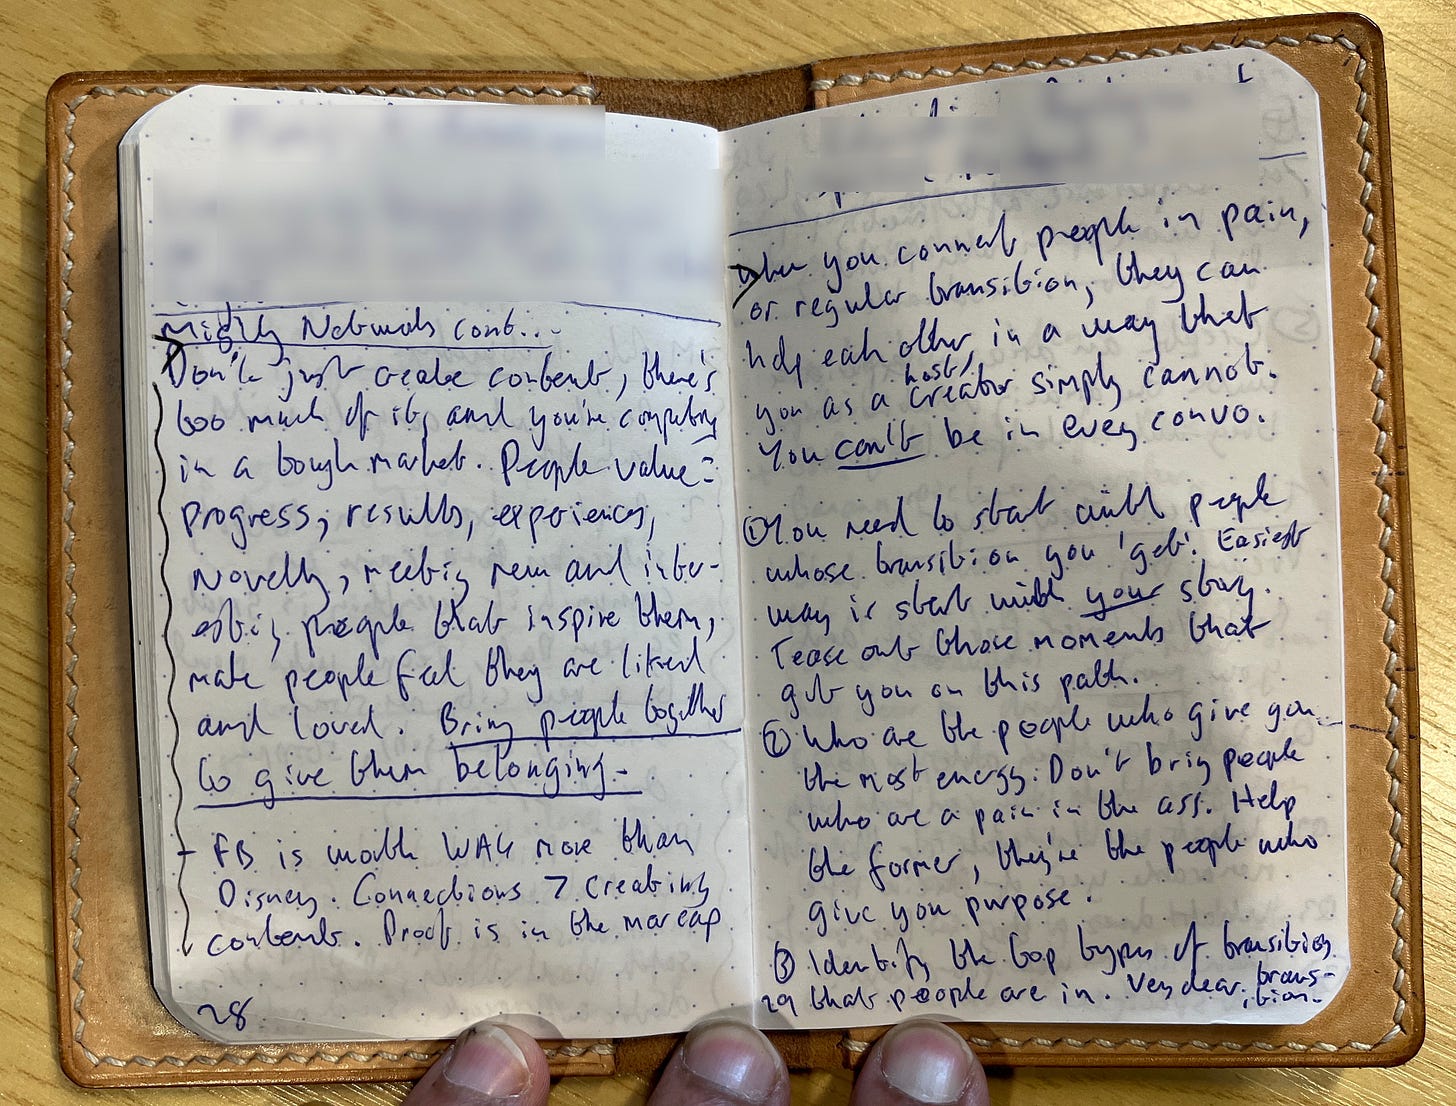 Mighty Networks cont...
Don't just create content, there's
too much of it, and you're competing
in a tough market. People value:
progress, results, experiences,
novelty, meeting new and inter-
esting people that inspire them,
make people feel they are liked
and loved. Bring people together
to give them belonging.
- FB is worth WAY more than
Disney. Connections > Creating
content. Proof is in the marcap
28
When you connect people in pain,
or regular transition, they can
help each other in a way that
host/
you as a creator simply cannot.
You can't be in every convo.
① You need to start with people
whose transition you 'get'. Easiest
way is start with your story.
Tease out those moments that
got you on this path.
② Who are the people who give you
the most energy. Don't bring people
who are a pain in the ass. Help
the former, they're the people who
give you purpose.
③ Identify the top types of transition
that people are in. Very clear trans-
ition.
29